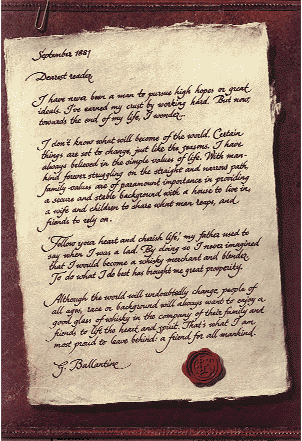 September 1881
Dearest reader
I have never been a man to pursue high hopes or great
ideals. I've earned my crust by working hard. But now,
towards the end of my life, I wonder.
I don't know what will become of the world. Certain
things are set to change, just like the seasons. I have
always believed in the simple values of life. With man-
kind forever struggling on the straight and narrow path,
family values are of paramount importance in providing
a secure and stable background with a house to live in,
a wife and children to share what man reaps, and
friends to rely on.
'Follow your heart and cherish life,' my father used to
say when I was a lad. By doing so I never imagined
that I would become a whisky merchant and blender.
To do what I do best has brought me great prosperity.
Although the world will undoubtedly change, people of
all ages, race or background will always want to enjoy a
good glass of whisky in the company of their family and
friends to lift the heart and spirit. That's what I am
most proud to leave behind: a friend for all mankind.
G. Ballantine